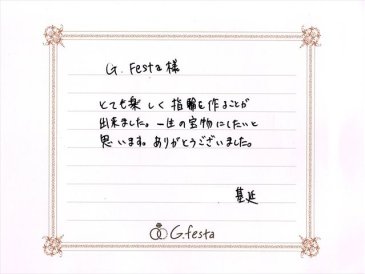 G. Festa 様
とても楽しく指輪を作ることが
出来ました。一生の宝物にしたいと
思います。ありがとうございました。
基延
G.festa